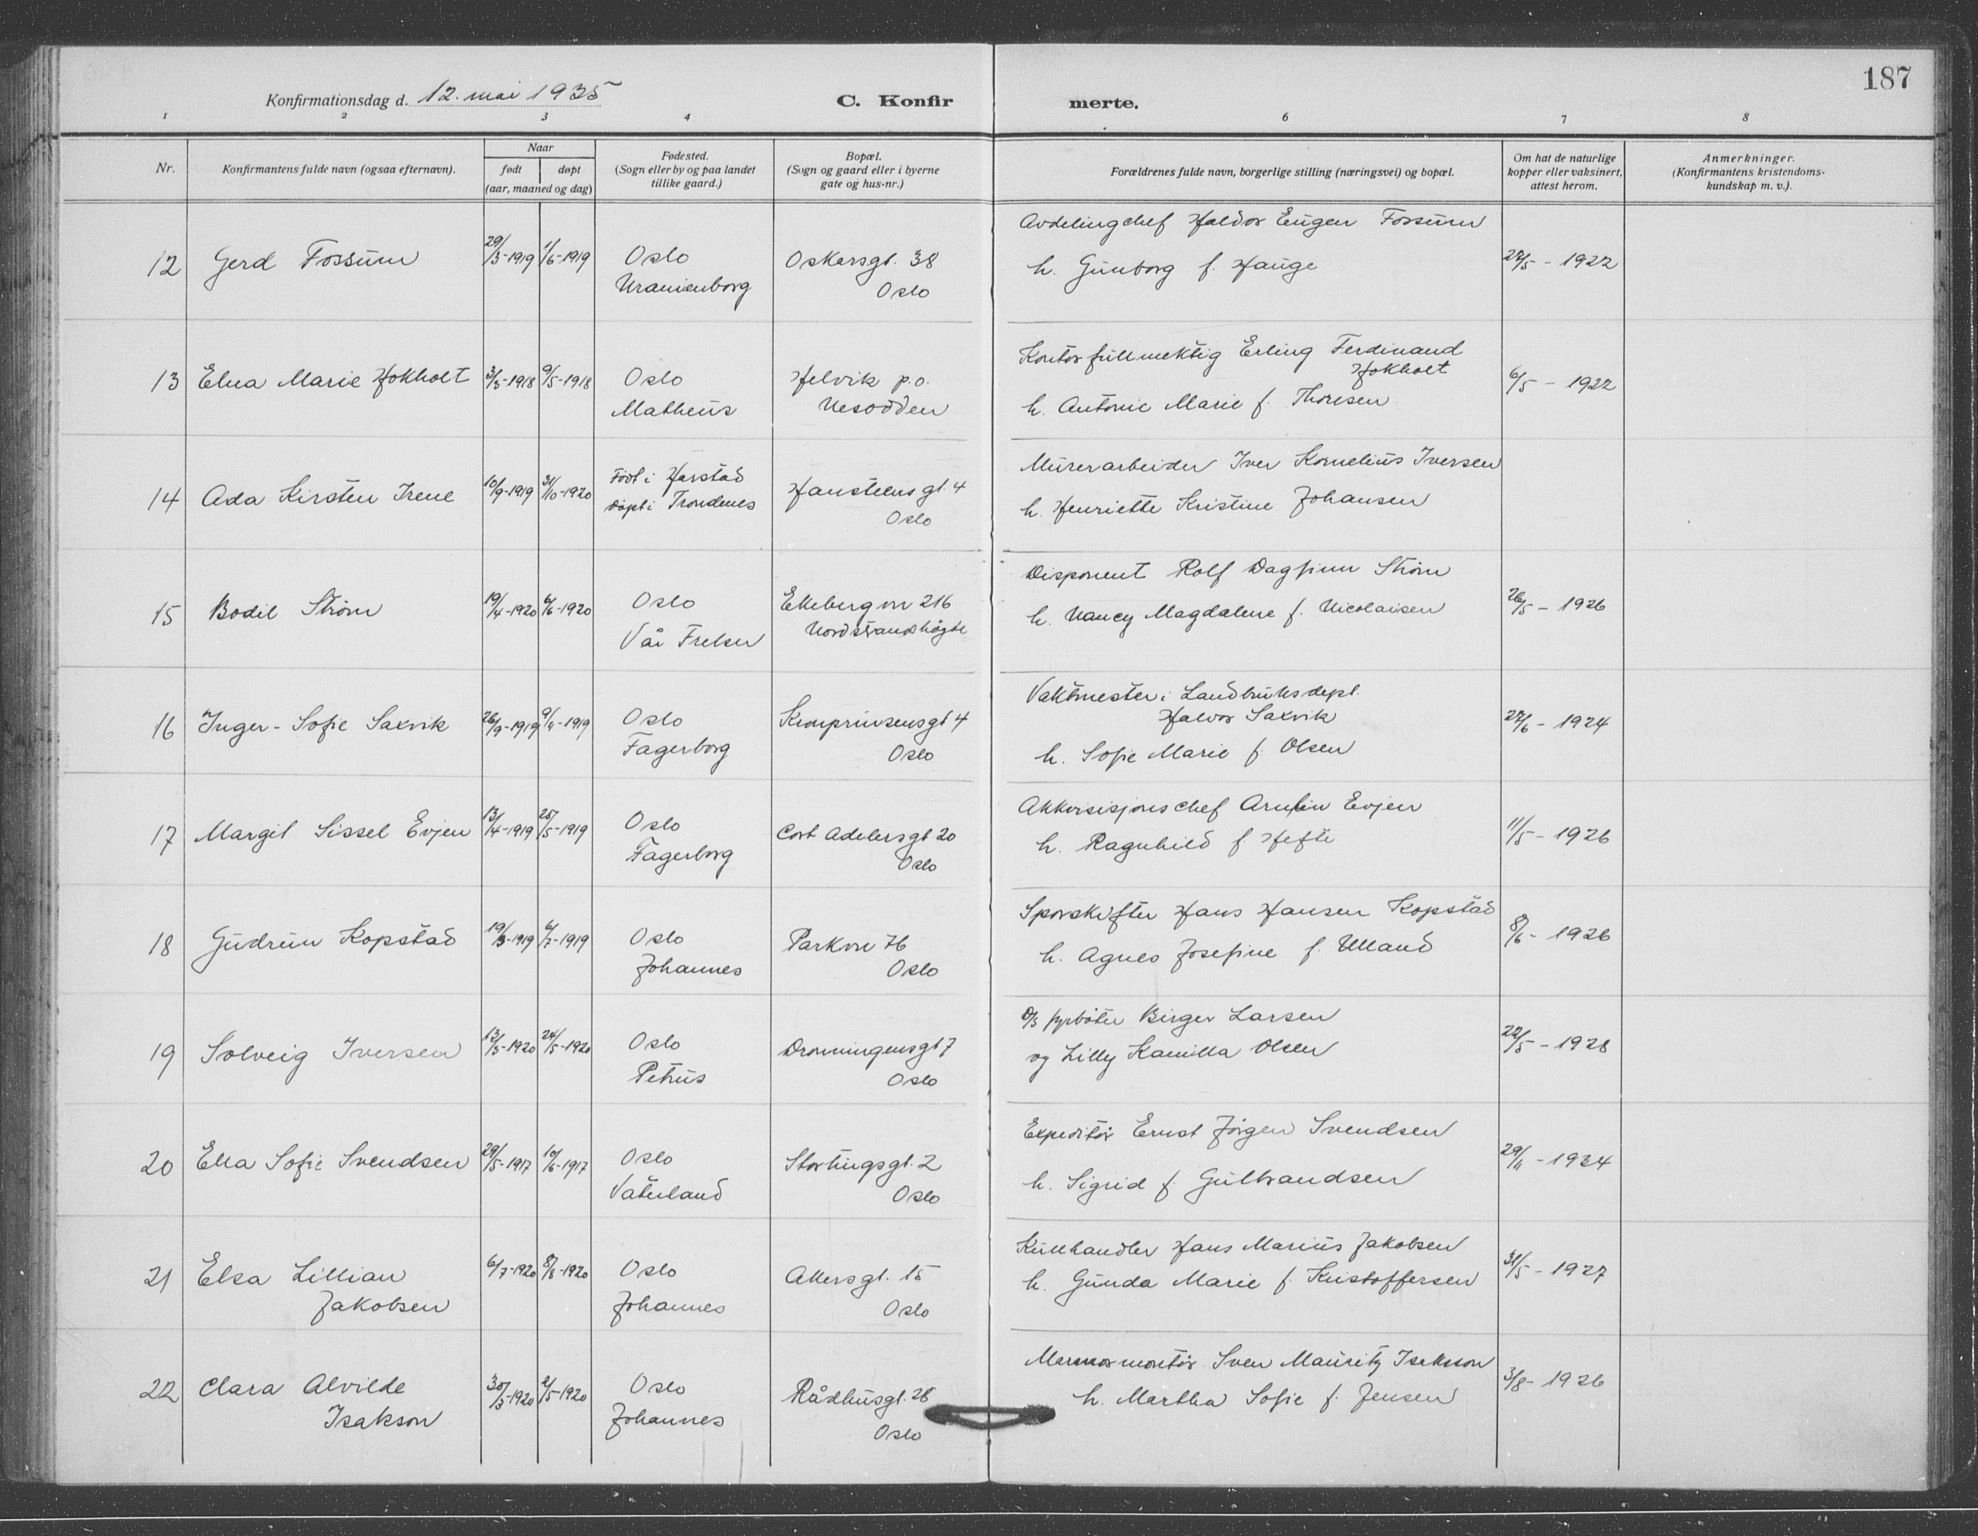 187
Konfirmationsdag d. 12. mai 1935
C. Konfir merte.
1 2 3 4 6 7 8
Nr.
Konfirmantens fulde navn (ogsaa efternavn).
Naar
født døpt
(aar, maaned og dag)
Fødested.
(Sogn eller by og paa landet
tillike gaard.)
Bopæl.
(Sogn og gaard eller i byerne
gate og hus-nr.)
Forældrenes fulde navn, borgerlige stilling (næringsvei) og bopæl.
Om hat de naturlige
kopper eller vaksinert,
attest herom.
Anmerkninger.
(Konfirmantens kristendoms-
kundskap m. v.).
Avdelingchef Haldor Eugen Fossum
12 Gerd Fossum 29/3-1919 1/6-1919 Oslo Oskarsgt. 38 h. Gunborg f. Hauge 22/5 - 1922
Uranienborg Oslo
Kontorfullmektig Erling Ferdinand
Hokholt
13 Elna Marie Hokholt 3/3-1918 9/5-1918 Oslo Helvik p.o. 6/5 - 1922
Matheus Nesodden h. Antonie Marie f. Thoresen
Murerarbeider Iver Kornelius Iversen
Født i Harstad
14 Ada Kirsten Irene 10/9-1919 31/10-1920 døpt i Trondenes Hansteensgt. 4 h. Henriette Kristine Johansen
Oslo
Disponent Rolf Dagfinn Strøm
15 Bodil Strøm 19/4-1920 6/6-1920 Oslo Ekebergvn 216 h. Nancy Magdalene f. Nicolaisen 26/5 - 1926
Vår Frelser Nordstrandhøgda
Vaktmester i Landbruksdept.
Halvor Saxvik
16 Inger-Sofie Saxvik 26/9-1919 9/11-1919 Oslo Kronprinsensgt 4 27/6 - 1924
Fagerborg Oslo h. Sofie Marie f. Olsen
Akkvisisjonschef Arnfin Evjen
17 Margit Sissel Evjen 13/4-1919 25/5-1919 Oslo Cort Adelersgt 20 h. Ragnhild f Hefte 11/5 - 1926
Fagerborg Oslo
Sporskifter Hans Hansen Kopstad
18 Gudrun Kopstad 19/3-1919 6/7-1919 Oslo Parkvn 76 h. Agnes Josefine f. Ulland 8/6 - 1926
Johannes Oslo
D/S fyrbøter Birger Larsen
19 Solveig Iversen 13/3-1920 24/5-1920 Oslo Dronningensgt 7 og Lilly Kamilla Olsen 22/5 - 1928
Petrus Oslo
Expeditør Ernst Jörgen Svendsen
20 Elsa Sofie Svendsen 29/5-1917 10/6-1917 Oslo Stortingsgt. 2 h. Sigrid f. Gulbrandsen 29/11 - 1934
Vaterland Oslo
Kullhandler Hans Marius Jakobsen
21 Elsa Lillian 6/7-1920 8/8-1920 Oslo Akersgt. 15 h. Gunda Marie f. Kristoffersen 31/5 - 1927
Jakobsen Johannes Oslo
Marmormontör Sven Mauritz Isaksson
22 Clara Alvilde 30/3-1920 2/5-1920 Oslo Rådhusgt. 28 h. Martha Sofie f. Jensen 3/8 - 1926
Isakson Johannes Oslo